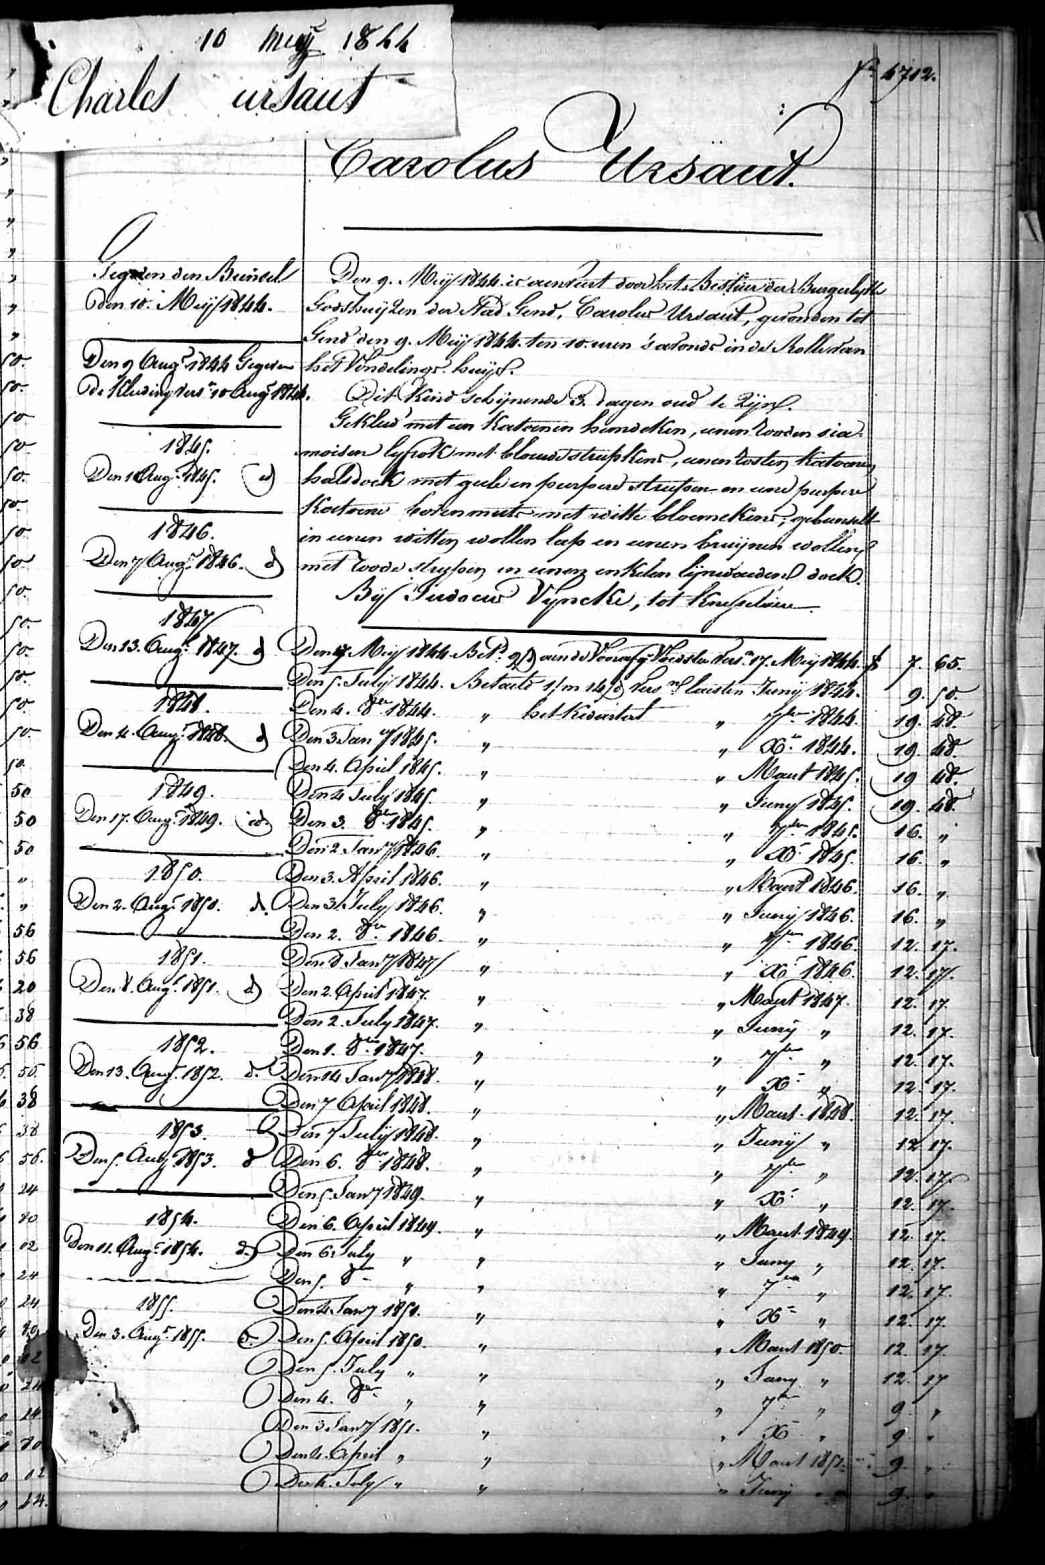 10 Meij 1844
Charles ursaut
4712.
Carolus Ursaut.
Gegeven den Bundsel
den 10. Meij 1844.
Den 9 Augt 1844 Gegeven
de Kleeding vers 10 Augt 1844.
1845.
Den 1 Augt 1845.
1846.
Den 7 Augt 1846.
1847
Den 13. Augt 1847.
1848.
Den 4. Augt 1848.
1849.
Den 17. Augt 1849.
1850.
Den 2. Augt 1850.
1851.
Den 8. Augt 1851.
1852.
Den 13. Augt 1852.
1853.
Den 5. Augt 1853.
1854.
Den 11. Augt 1854.
1855.
Den 3. Augt 1855.
Den 9. Meij 1844 is aenveert door het Bestier der Burgerlijke
Godshuijzen der Stad Gend, Carolus Ursaut, gevonden tot
Gend den 9. Meij 1844 ten 10 uren 's avonds in de Rolle van
het Vondelings huijs.
Dit Kind schijnende 3. dagen oud te Zijn.
Gekleed met een Katoenen hemdeken, eenen rooden sia-
moisen lijfrok met blauwe streepkens, eenen rosten Katoenen
halsdoek met geele en purpere streepen en eene purpere
Katoene bovenmuts met witte bloemekens, gebunselt
in eenen witten wollen lap en eenen bruijnen wollen
met roode streepen en eenen enkelen lijnwaeden doek.
Bij Judocus Vijncke, tot Knesselaere.
Meij 1844 aen de Voedster vers 17. Meij 1844. 7. 65.
Den 5. Julij 1844. Betaelt Junij 1844. 9. 50
Den 4. 8er 1844. " het Kwartael " 7ber 1844. 19. 48.
Den 3 Jany 1845. " " Xr 1844. 19. 48.
Den 4. April 1845. " " Maert 1845. 19 48.
Den 4 July 1845. " " Junij 1845. 19. 48.
Den 3. 8er 1845. " " 7ber 1845. 16. "
Den 2 Jany 1846. " " Xr 1845. 16. "
Den 3. April 1846. " " Maert 1846. 16. "
Den 3 July 1846. " " Junij 1846. 16. "
Den 2. 8er 1846. " " 7ber 1846. 12. 17.
Den 8 Jany 1847 " " Xr 1846. 12. 17.
Den 2. April 1847. " " Maert 1847. 12. 17.
Den 2. July 1847. " " Junij " 12. 17.
Den 1. 8er 1847. " " 7ber " 12. 17.
Den 14 Jany 1848. " " Xr " 12. 17.
Den 7 April 1848. " " Maert 1848. 12. 17.
Den 7 Julij 1848. " " Junij " 12 17.
Den 6. 8er 1848. " " 7ber " 12. 17
Den 5 Jany 1849. " " Xr " 12. 17.
Den 6. April 1849. " " Maert 1849. 12. 17.
Den 6 July " " " Juny " 12. 17.
Den 5. 8er " " " 7ber " 12. 17.
Den 4 Jany 1850. " " Xr " 12. 17.
Den 5. April 1850. " " Maert 1850. 12 17.
Den 5. July " " " Juny " 12. 17
Den 4. 8er " " " 7ber " 9. "
Den 3 Jany 1851. " " X " 9 "
Den 4. April " " " Maert 1851. 9. "
Den 4. July " " " Junij " 9. "